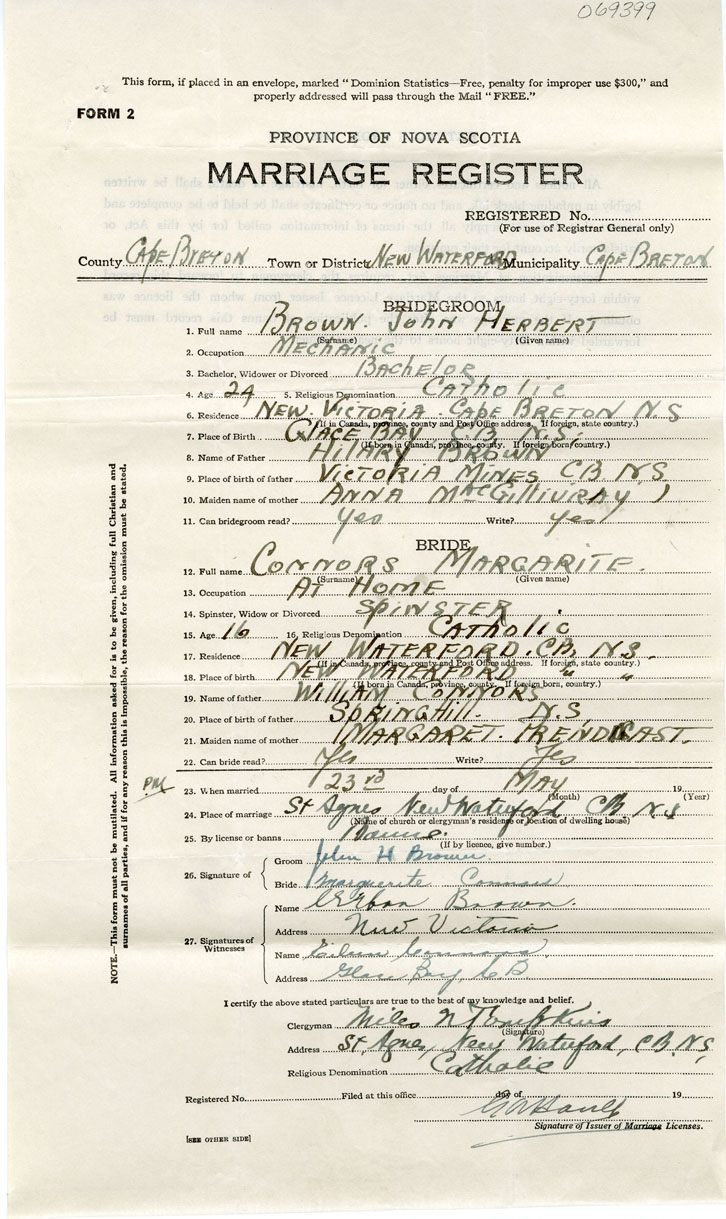 069399
This form, if placed in an envelope, marked "Dominion Statistics—Free, penalty for improper use $300," and
properly addressed will pass through the Mail "FREE."
FORM 2
PROVINCE OF NOVA SCOTIA
MARRIAGE REGISTER
REGISTERED No.
(For use of Registrar General only)
County Cape Breton Town or District New Waterford Municipality Cape Breton
BRIDEGROOM
1. Full name Brown. John Herbert
(Surname) (Given name)
2. Occupation Mechanic
3. Bachelor, Widower or Divorced Bachelor
4. Age 24 5. Religious Denomination Catholic
6. Residence New. Victoria. Cape Breton N S
(If in Canada, province, county and Post Office address. If foreign, state country.)
7. Place of Birth Glace Bay C.B. N.S.
(If born in Canada, province, county. If foreign born, country.)
8. Name of Father Hilary Brown
9. Place of birth of father Victoria Mines CB N.S.
10. Maiden name of mother Anna MacGillivray
11. Can bridegroom read? Yes Write? yes
BRIDE
12. Full name Connors Margarite.
(Surname) (Given name)
13. Occupation At Home
14. Spinster, Widow or Divorced Spinster
15. Age 16 16. Religious Denomination Catholic
17. Residence New Waterford. CB. N.S.
(If in Canada, province, county and Post Office address. If foreign, state country.)
18. Place of birth New Waterford " "
(If born in Canada, province, county. If foreign born, country.)
19. Name of father William Connors
20. Place of birth of father Springhill. N.S.
21. Maiden name of mother Margaret.
22. Can bride read? Yes Write? Yes
PM
23. When married 23rd day of May 19
(Month) (Year)
24. Place of marriage St Agnes New Waterford CB N.S
(Name of church or clergyman's residence or location of dwelling house)
25. By license or banns Banns.
(If by licence, give number.)
26. Signature of
Groom John H Brown.
Bride Marguerite Connors
27. Signatures of Witnesses
Name Brown.
Address New Victoria
Name Connors
Address Glace Bay C B
I certify the above stated particulars are true to the best of my knowledge and belief.
Clergyman Miles N Tompkins
(Signature)
Address St. Agnes, New Waterford, C.B. N.S.
Religious Denomination Catholic
Registered No. Filed at this office day of 19
Signature of Issuer of Marriage Licenses.
[SEE OTHER SIDE]
NOTE.—This form must not be mutilated. All information asked for is to be given, including full Christian and
surnames of all parties, and if for any reason this is impossible, the reason for the omission must be stated.